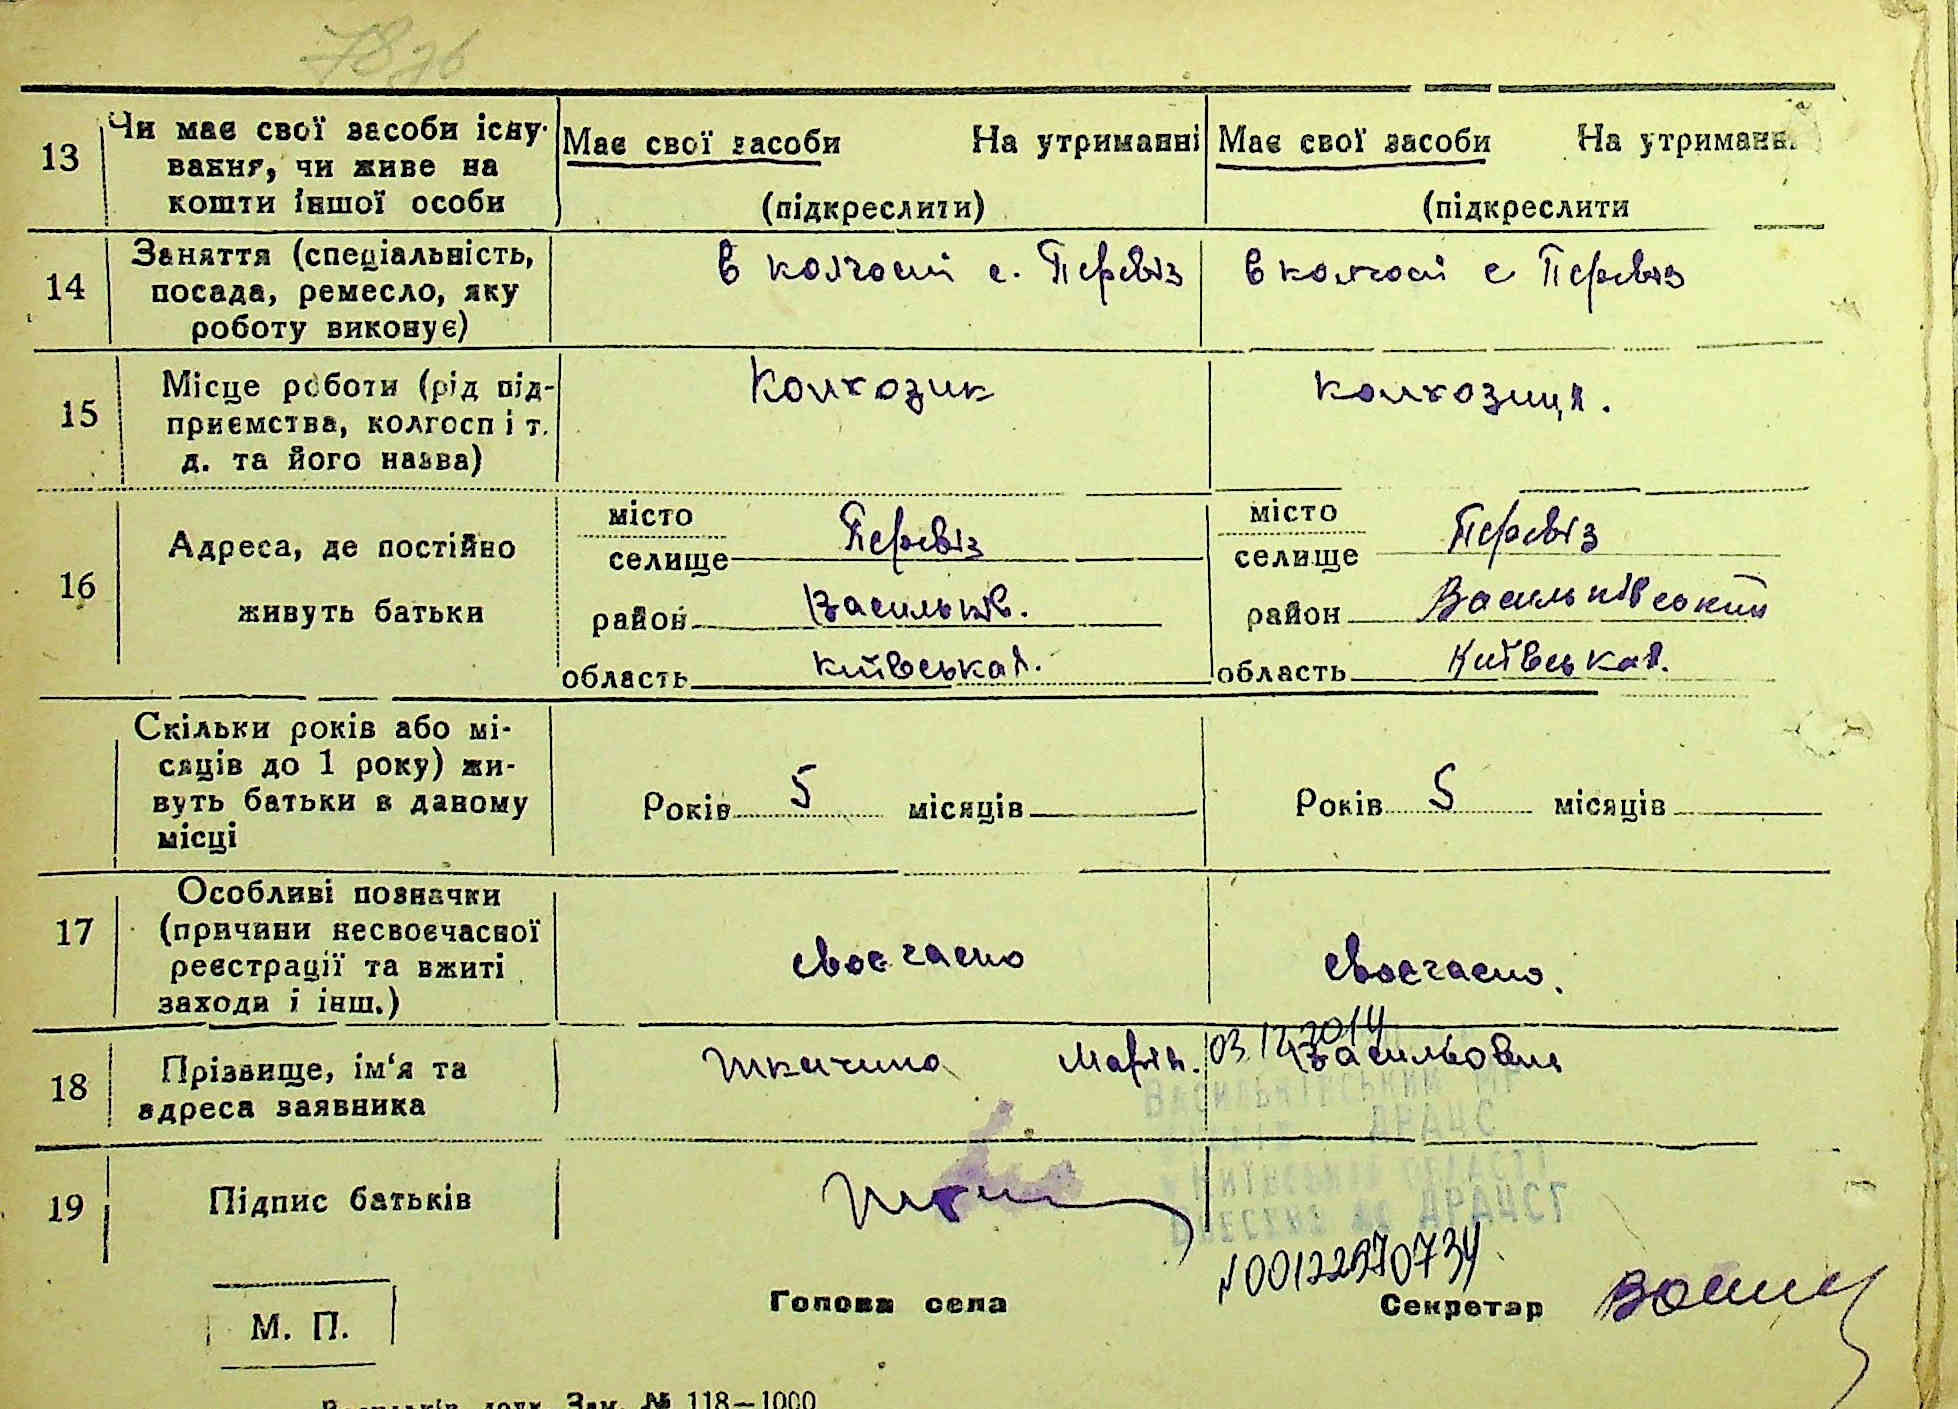 78 зв
13 Чи має свої засоби існу-
вання, чи живе на
кошти іншої особи
Має свої засоби На утриманні
(підкреслити)
Має свої засоби На утриманні
(підкреслити
14 Заняття (спеціальність,
посада, ремесло, яку
роботу виконує)
в колгоспі с. Перевіз
в колгоспі с Перевіз
15 Місце роботи (рід під-
приємства, колгосп і т.
д. та його назва)
Колхозник
колхозниця.
16 Адреса, де постійно
живуть батьки
місто
селище Перевіз
район Васильків.
область київська.
місто
селище Перевіз
район Васильківський
область Київська.
Скільки років або мі-
сяців до 1 року) жи-
вуть батьки в даному
місці
Років 5 місяців
Років 5 місяців
17 Особливі позначки
(причини несвоєчасної
реєстрації та вжиті
заходи і інш.)
своєчасно
своєчасно.
03.12.2014
18 Прізвище, ім'я та
адреса заявника
Марія. Васильовна
Васильківський МР
ДРАЦС
Київській області
Внесено до ДРАЦСГ
19 Підпис батьків
№00122970734
М. П.
Голова села
Секретар
Зам. № 118—1000